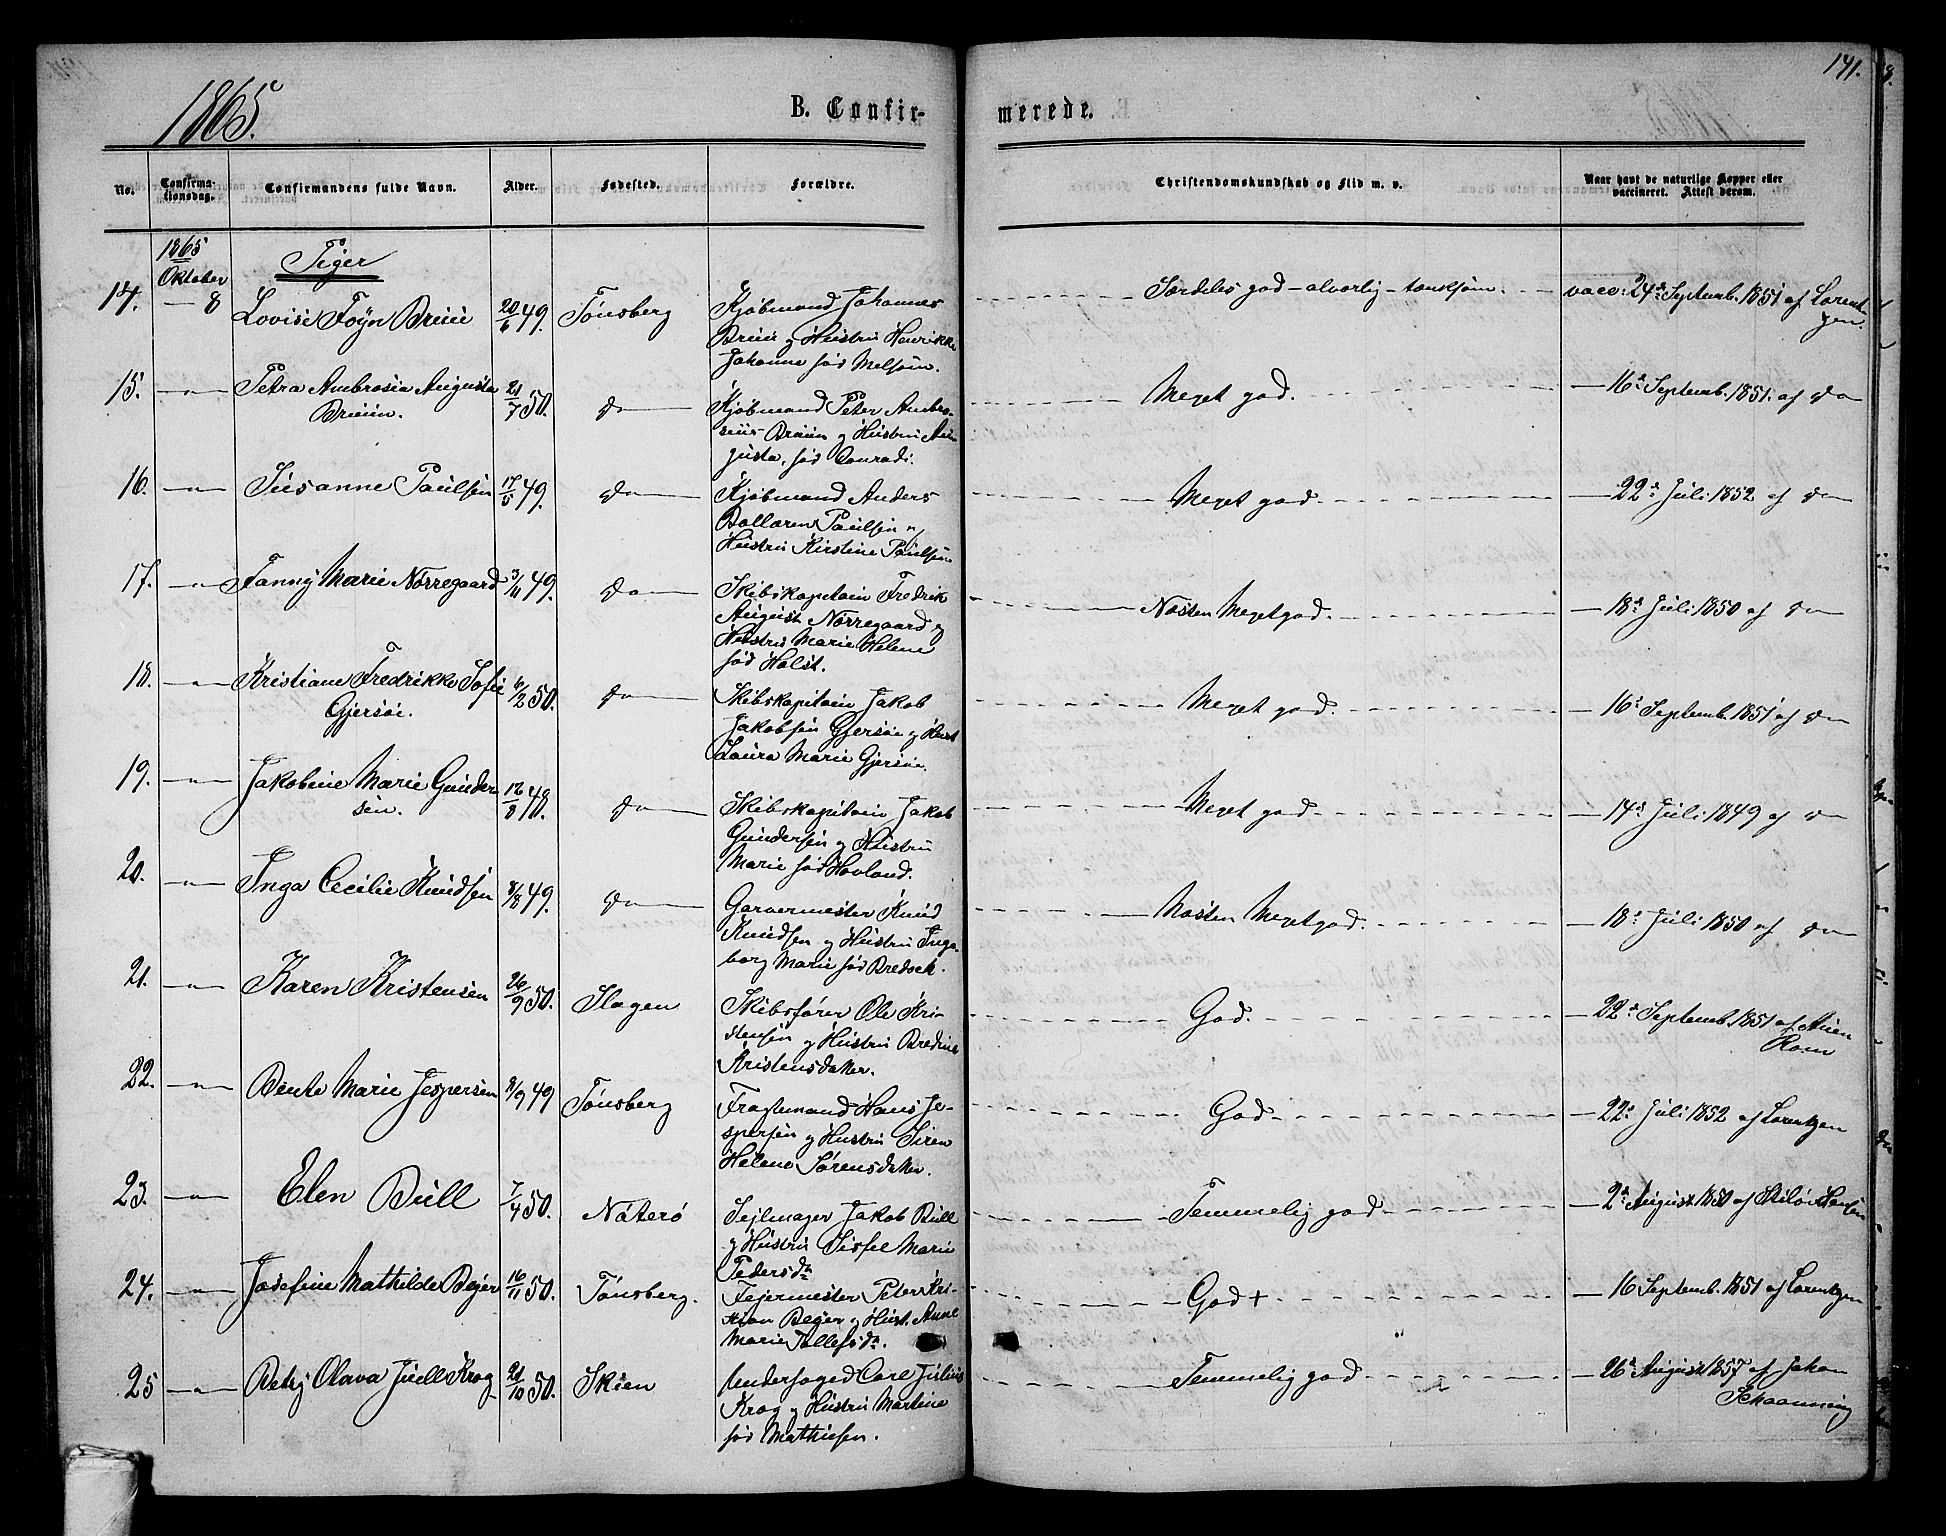 1865.
B. Confir-
merede.
141.
No.
Confirma-
tionsdag.
Confirmandens fulde Navn.
Alder.
Fødested.
Forældre.
Christendomskundskab og Flid m. v.
Naar havt de naturlige Kopper eller
vaccineret. Attest derom.
1865
Oktober
Piger
14. — 8 Lovise Foÿn Brüü 20/6 49. Tønsberg
Kjøbmand Johannes
Brüü og Hustru Henrikke
Johanne fød Melsom.
Særdeles god - alvorlig - tænksom.
vacc: 24de Septemb. 1851 af Lorent
zen.
15. — " — Petra Ambrosia Augusta
Brüün. 21/7 50. do
Kjøbmand Peter Ambro-
siüs Brüün og Hustru Au
gusta, fød Conradi.
Meget god.
— 16de Septemb. 1851. af do
16. — " — Susanne Paulsen 17/5 49. do
Kjøbmand Anders
Bollaren Paulsen og
Hustru Kirstine Paulsen
Meget god
— 22de Juli 1852 af do
17. — " — Fanny Marie Nørregaard 3/11 49. do
Skibskapitain Fredrik
August Nørregaard og
Hustru Marie Helene
fød Holst.
Næsten Meget god.
— 18de Juli 1850 af do
18. — " — Kristiane Fredrikke Sofie
Gjersøe. 6/2 50. do
Skibskapitain Jakob
Jakobsen Gjersøe og Hust
Laura Marie Gjersøe.
Meget god.
— 16de Septemb. 1851 af do
19. — " — Jakobine Marie Gunder
sen. 12/8 48. do
Skibskapitain Jakob
Gundersen og Hustru
Marie fød Hovland.
Meget god
— 14de Juli 1849 af do
20. — " — Inga Cecilie Knudsen 8/8 49. do
Garvermester Knud
Knudsen og Hustru Inge-
borg Marie fød Bredsek.
Næsten Meget god.
— 18de Juli 1850 af do
21. — " — Karen Kristensen 26/9 50. Slagen
Skibsfører Ole Kri-
stensen og Hustru Bredine
Kristensdater.
God.
— 22de Septemb. 1851 af
Rom
22. — " — Bente Marie Jespersen 8/9 49 Tønsberg
Fragtemand Hans Je-
spersen og Hustru Siren
Helene Sørensdater.
God
— 22de Juli 1852 af Lorentzen
23. — " — Elen Bull 7/4 50. Nøterø
Sejlmager Jakob Bull
og Hustru Sissel Marie
Pedersdtr
Temmelig god
— 2de August 1850 af Hansen
24. — " — Josefine Mathilde Bejer 16/11 50. Tønsberg.
Fejermester Peter Kri-
stian Bejer og Hust. Anne
Marie Tollefsdtr.
God +
— 16 Septemb. 1851 af Lorentzen
25 — " — Betzy Olava Juell Krog 21/10 50. Skien
Underfoged Carl Julius
Krog og Hustru Martine
fød Mathiesen.
Temmelig god
— 26de August 1857 af Johan
Schaanning